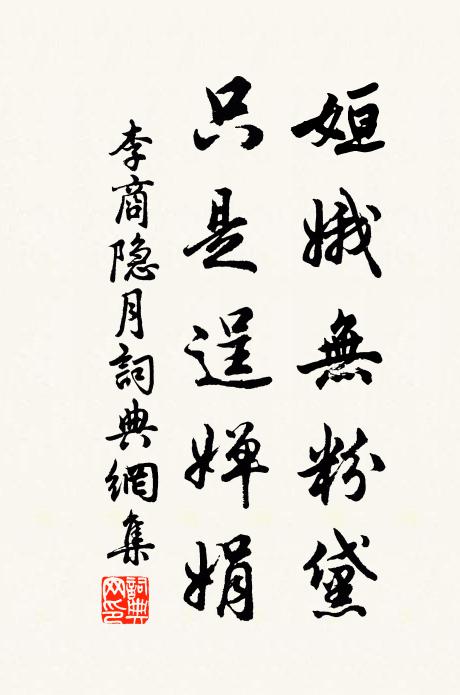 姮娥無粉黛
只是逞嬋娟
李商隐月詞典網集
詞典网印